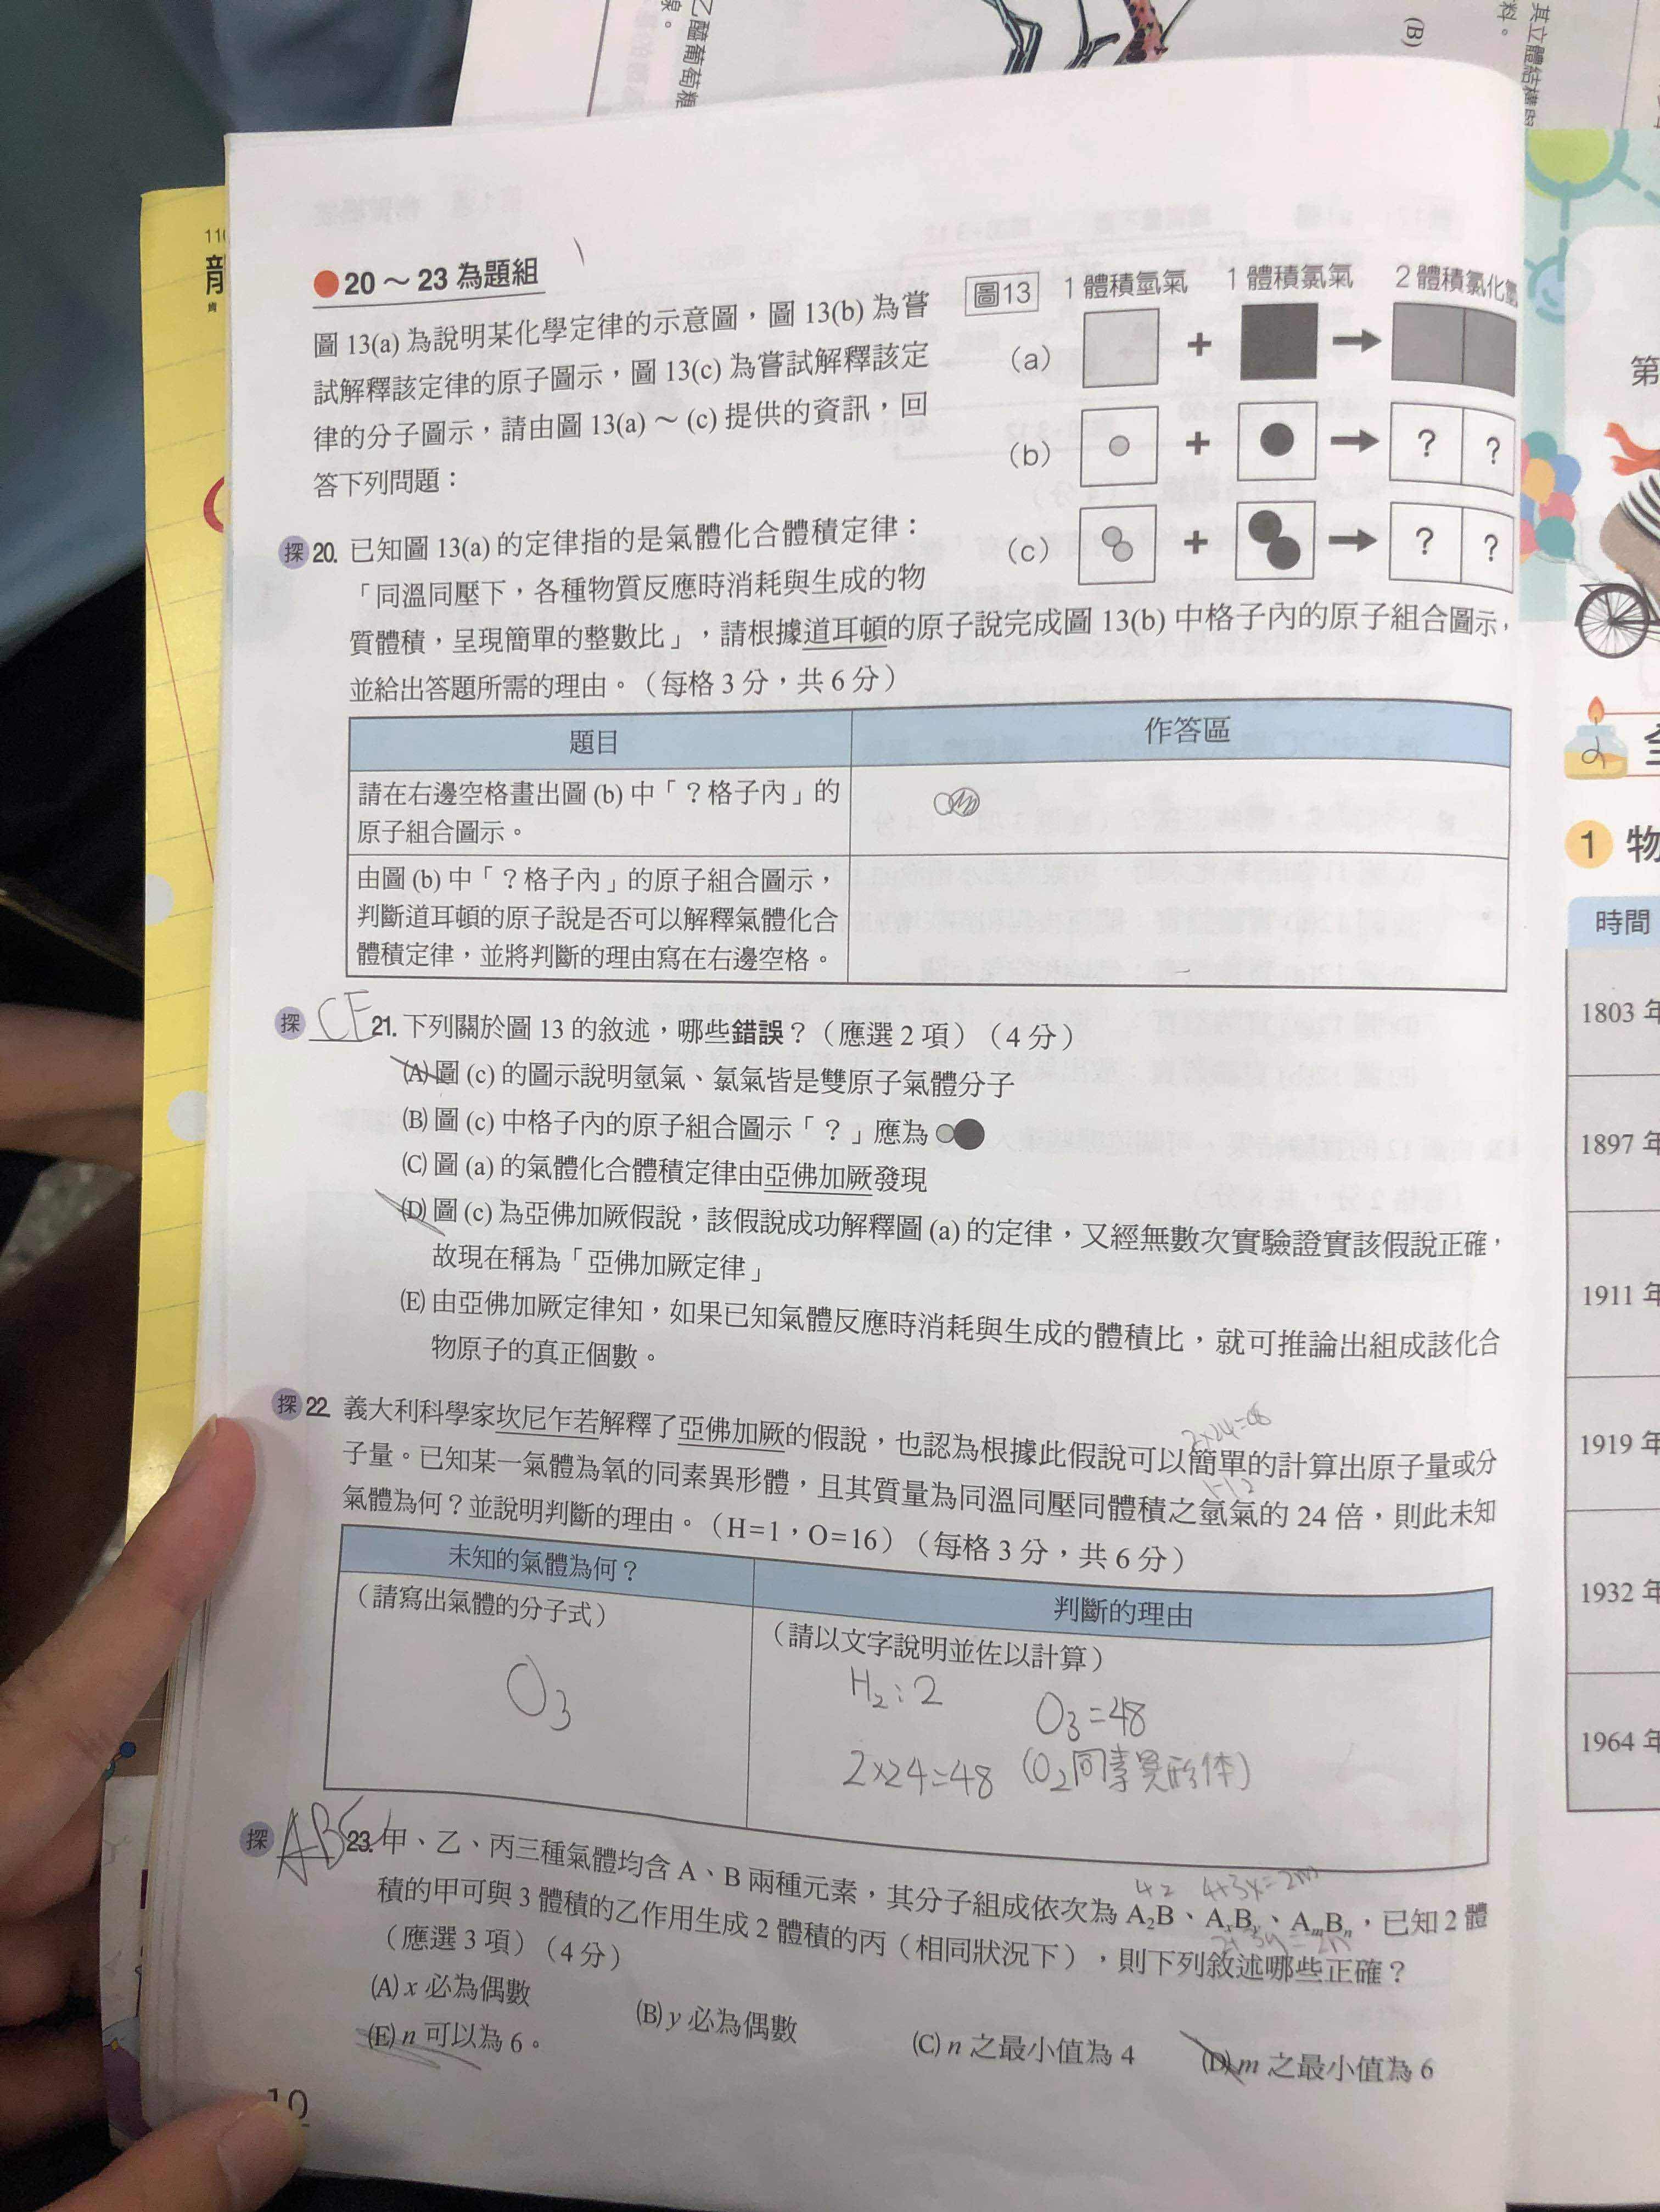 乙醯葡萄糖
線。
(B)
其立體結構與
料。
110
●20～23 為題組
圖 13(a) 為說明某化學定律的示意圖，圖 13(b) 為嘗
試解釋該定律的原子圖示，圖 13(c) 為嘗試解釋該定
律的分子圖示，請由圖 13(a)～(c) 提供的資訊，回
答下列問題：
圖13 1 體積氫氣 1 體積氯氣 2 體積氯化氫
(a) + →
(b) + → ? ?
(c) + → ? ?
探 20. 已知圖 13(a) 的定律指的是氣體化合體積定律：
「同溫同壓下，各種物質反應時消耗與生成的物
質體積，呈現簡單的整數比」，請根據道耳頓的原子說完成圖 13(b) 中格子內的原子組合圖示，
並給出答題所需的理由。（每格 3 分，共 6 分）
題目 作答區
請在右邊空格畫出圖 (b) 中「？格子內」的
原子組合圖示。
由圖 (b) 中「？格子內」的原子組合圖示，
判斷道耳頓的原子說是否可以解釋氣體化合
體積定律，並將判斷的理由寫在右邊空格。
探 CE 21. 下列關於圖 13 的敘述，哪些錯誤？（應選 2 項）（4 分）
(A) 圖 (c) 的圖示說明氫氣、氯氣皆是雙原子氣體分子
(B) 圖 (c) 中格子內的原子組合圖示「？」應為
(C) 圖 (a) 的氣體化合體積定律由亞佛加厥發現
(D) 圖 (c) 為亞佛加厥假說，該假說成功解釋圖 (a) 的定律，又經無數次實驗證實該假說正確，
故現在稱為「亞佛加厥定律」
(E) 由亞佛加厥定律知，如果已知氣體反應時消耗與生成的體積比，就可推論出組成該化合
物原子的真正個數。
探 22 義大利科學家坎尼乍若解釋了亞佛加厥的假說，也認為根據此假說可以簡單的計算出原子量或分
子量。已知某一氣體為氧的同素異形體，且其質量為同溫同壓同體積之氫氣的 24 倍，則此未知
氣體為何？並說明判斷的理由。（H=1，O=16）（每格 3 分，共 6 分）
未知的氣體為何？ 判斷的理由
（請寫出氣體的分子式） （請以文字說明並佐以計算）
O3
H2:2 O3=48
2×24=48 (O2同素異形体)
探 ABC 23. 甲、乙、丙三種氣體均含 A、B 兩種元素，其分子組成依次為 A2B、AxBy、AmBn，已知 2 體
4+3x=2m
積的甲可與 3 體積的乙作用生成 2 體積的丙（相同狀況下），則下列敘述哪些正確？
2+3y=2n
（應選 3 項）（4 分）
(A) x 必為偶數 (B) y 必為偶數 (C) n 之最小值為 4 (D) m 之最小值為 6
(E) n 可以為 6。
10
第
全
1 物
時間
1803 年
1897 年
1911 年
1919 年
1932 年
1964 年